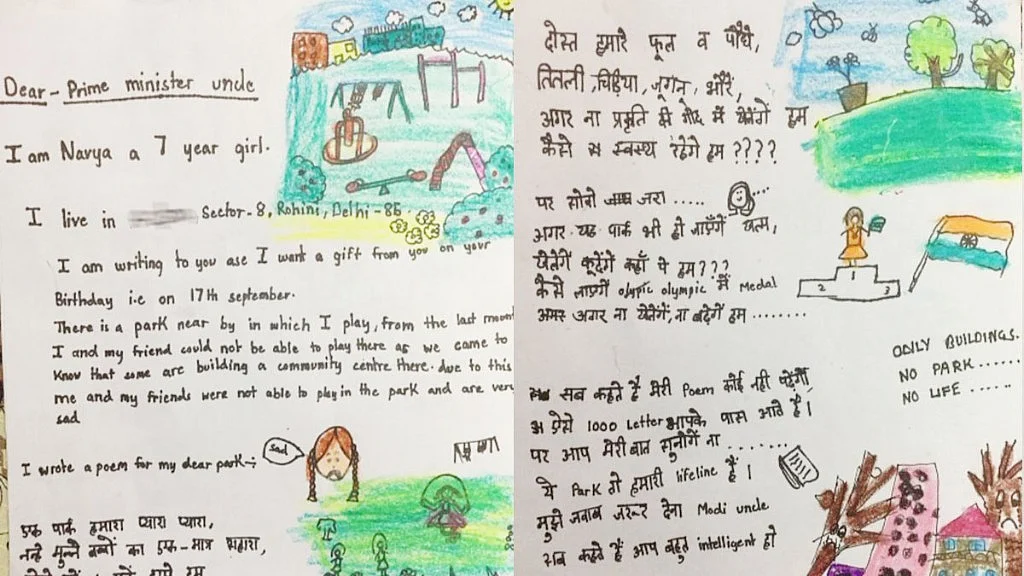 Dear - Prime minister uncle
I am Navya a 7 year girl.
I live in Sector-8, Rohini, Delhi - 85
I am writing to you ase I want a gift from you on your
Birthday i.e on 17th september.
There is a park near by in which I play, from the last mont
I and my friend could not be able to play there as we came to
Know that some are building a community centre there. due to this
me and my friends were not able to play in the park and are very
sad
sad
I wrote a poem for my dear park -:
एक पार्क हमारा प्यारा प्यारा,
नन्हे मुन्ने बच्चों का एक-मात्र सहारा,
दोस्त हमारे फूल व पौधे,
तितली, चिड़िया, जुगनू, भौंरे,
अगर ना प्रकृति की गोद में खेलेंगे हम
कैसे स्वस्थ रहेंगे हम ????
पर सोचो जरा .....
अगर यह पार्क भी हो जाएँगे खत्म,
खेलेंगें कूदेंगे कहाँ पे हम???
कैसे लाएंगें olypic olympic में Medal
अगर ना खेलेंगें, ना बढ़ेगें हम ........
1
2
3
ONLY BUILDINGS.
NO PARK .....
NO LIFE ......
सब कहते हैं मेरी Poem कोई नही पढ़ेगा,
ऐसे 1000 Letter आपके पास आते है।
पर आप मेरी बात सुनोगें ना ........
ये Park तो हमारी lifeline है।
मुझे जवाब जरूर देना Modi uncle
सब कहते हैं आप बहुत intelligent हो